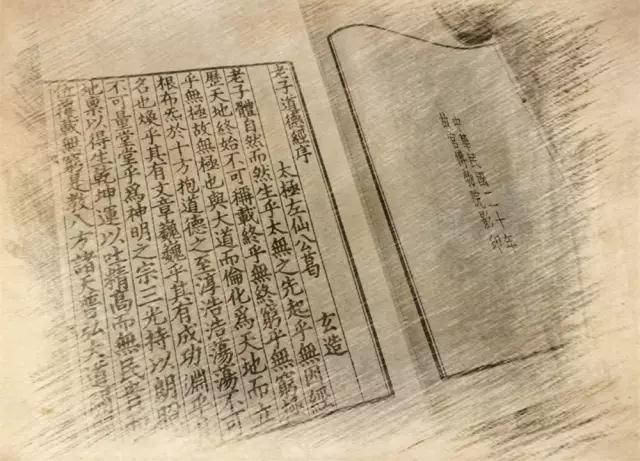 中華民國二十年
故宮博物院影印
老子道德經序
太極左仙公葛 玄造
老子體自然而然生乎太無之先起乎無因經
歷天地終始不可稱載終乎無終窮乎無窮極
乎無極故無極也與大道而倫化爲天地而立
根布炁於十方抱道德之至淳浩浩蕩蕩不可
名也煥乎其有文章巍巍乎其有成功淵乎
不可量堂堂乎爲神明之宗三光持以朗照
地稟以得生乾坤運以吐精高而無民貴
位覆載無窮是教八方諸天普弘大道